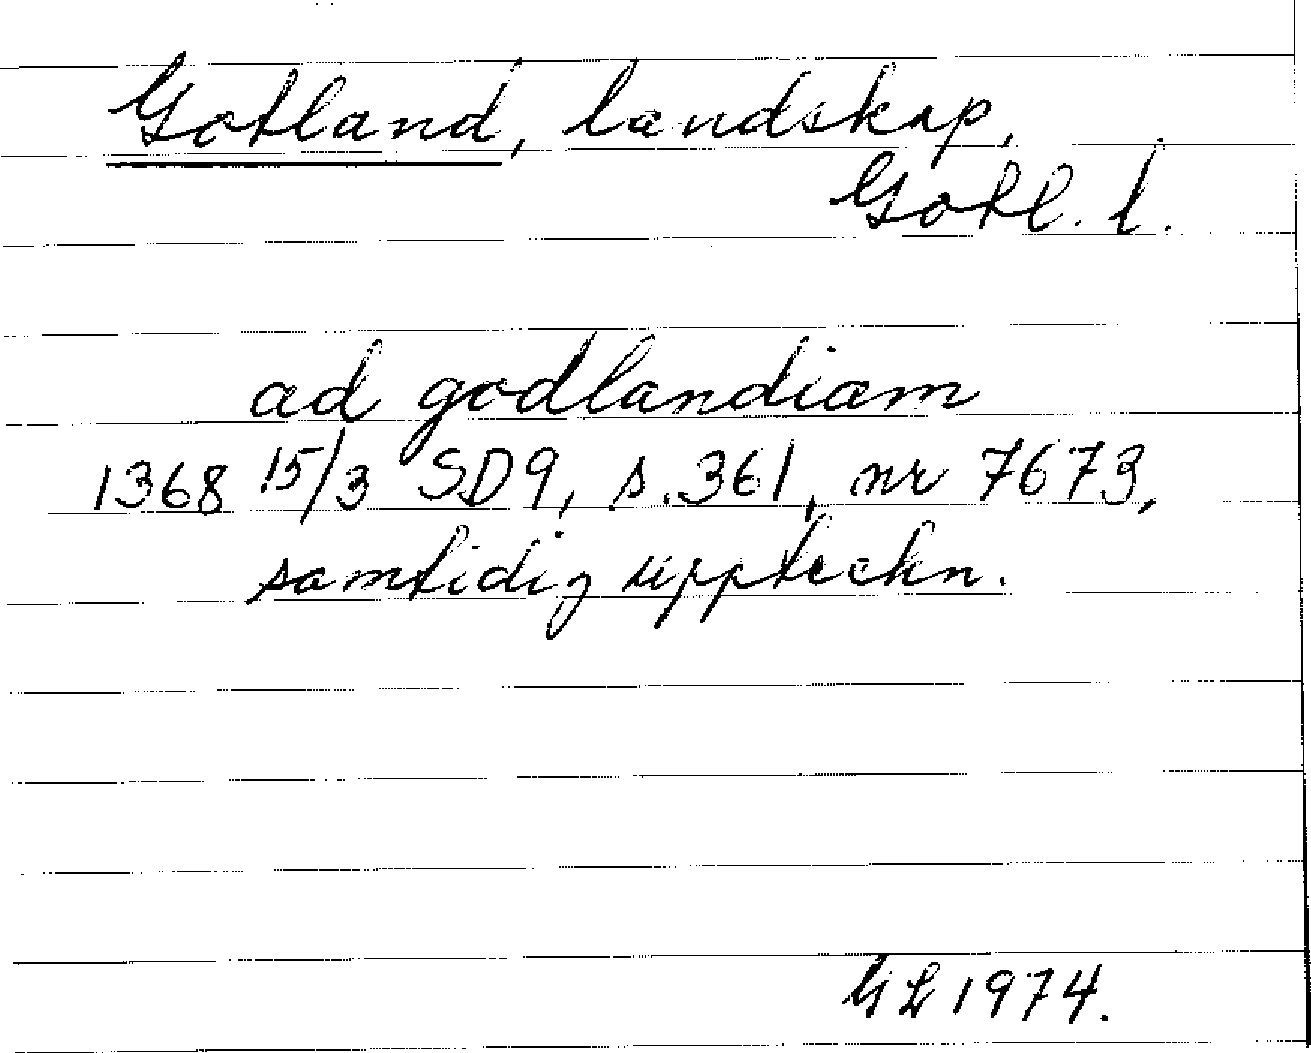 Gotland, landskap,
Gotl. l.
ad godlandiam
1368 15/3 SD9, s. 361, nr 7673,
samtidig uppteckn.
GL 1974.